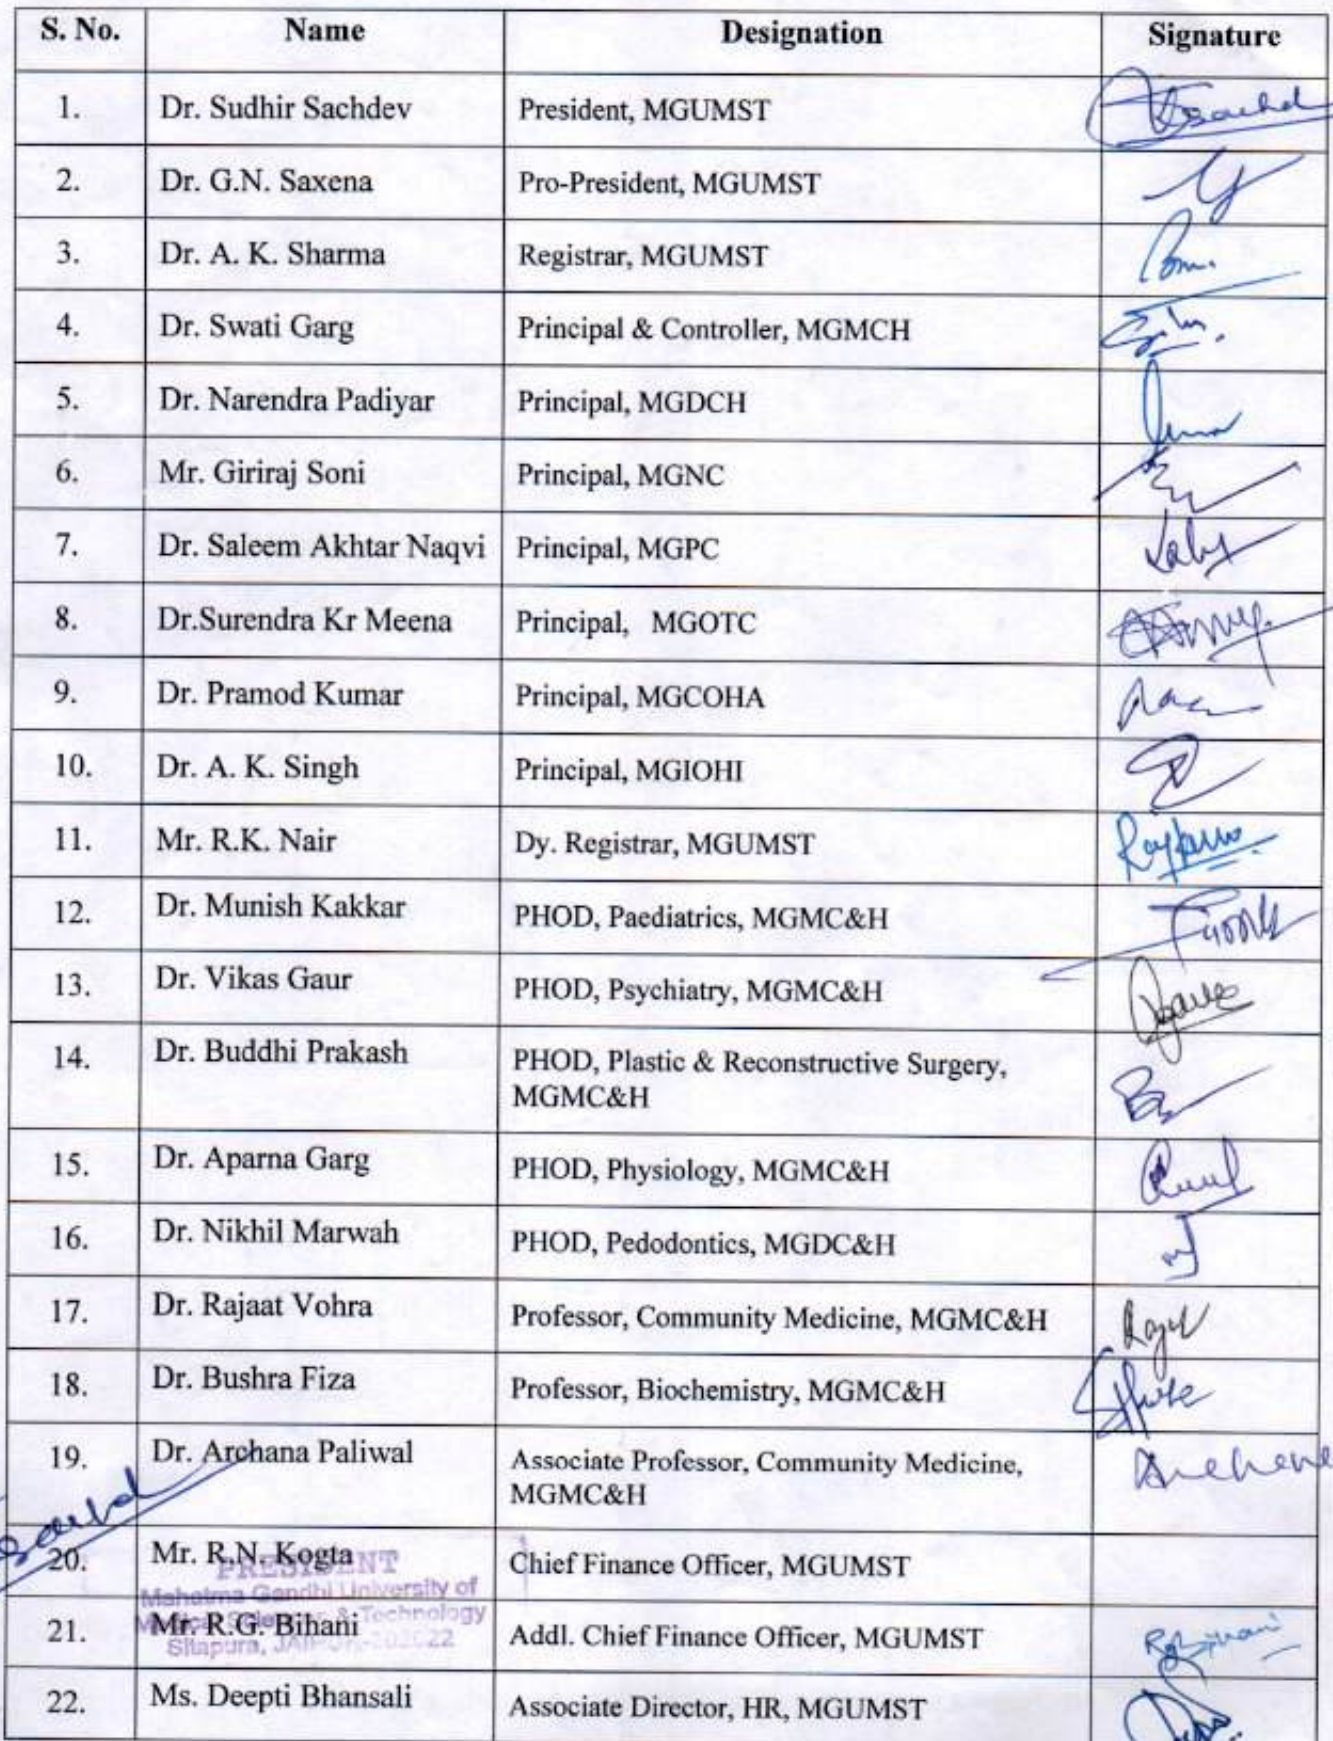 S. No. Name Designation Signature
1. Dr. Sudhir Sachdev President, MGUMST
2. Dr. G.N. Saxena Pro-President, MGUMST
3. Dr. A. K. Sharma Registrar, MGUMST
4. Dr. Swati Garg Principal & Controller, MGMCH
5. Dr. Narendra Padiyar Principal, MGDCH
6. Mr. Giriraj Soni Principal, MGNC
7. Dr. Saleem Akhtar Naqvi Principal, MGPC
8. Dr.Surendra Kr Meena Principal, MGOTC
9. Dr. Pramod Kumar Principal, MGCOHA
10. Dr. A. K. Singh Principal, MGIOHI
11. Mr. R.K. Nair Dy. Registrar, MGUMST
12. Dr. Munish Kakkar PHOD, Paediatrics, MGMC&H
13. Dr. Vikas Gaur PHOD, Psychiatry, MGMC&H
14. Dr. Buddhi Prakash PHOD, Plastic & Reconstructive Surgery,
MGMC&H
15. Dr. Aparna Garg PHOD, Physiology, MGMC&H
16. Dr. Nikhil Marwah PHOD, Pedodontics, MGDC&H
17. Dr. Rajaat Vohra Professor, Community Medicine, MGMC&H
18. Dr. Bushra Fiza Professor, Biochemistry, MGMC&H
19. Dr. Archana Paliwal Associate Professor, Community Medicine,
MGMC&H
20. Mr. R.N. Kogta Chief Finance Officer, MGUMST
PRESIDENT
Mahatma Gandhi University of
Medical Sciences & Technology
21. Mr. R.G. Bihani Addl. Chief Finance Officer, MGUMST
Sitapura, JAIPUR
22. Ms. Deepti Bhansali Associate Director, HR, MGUMST